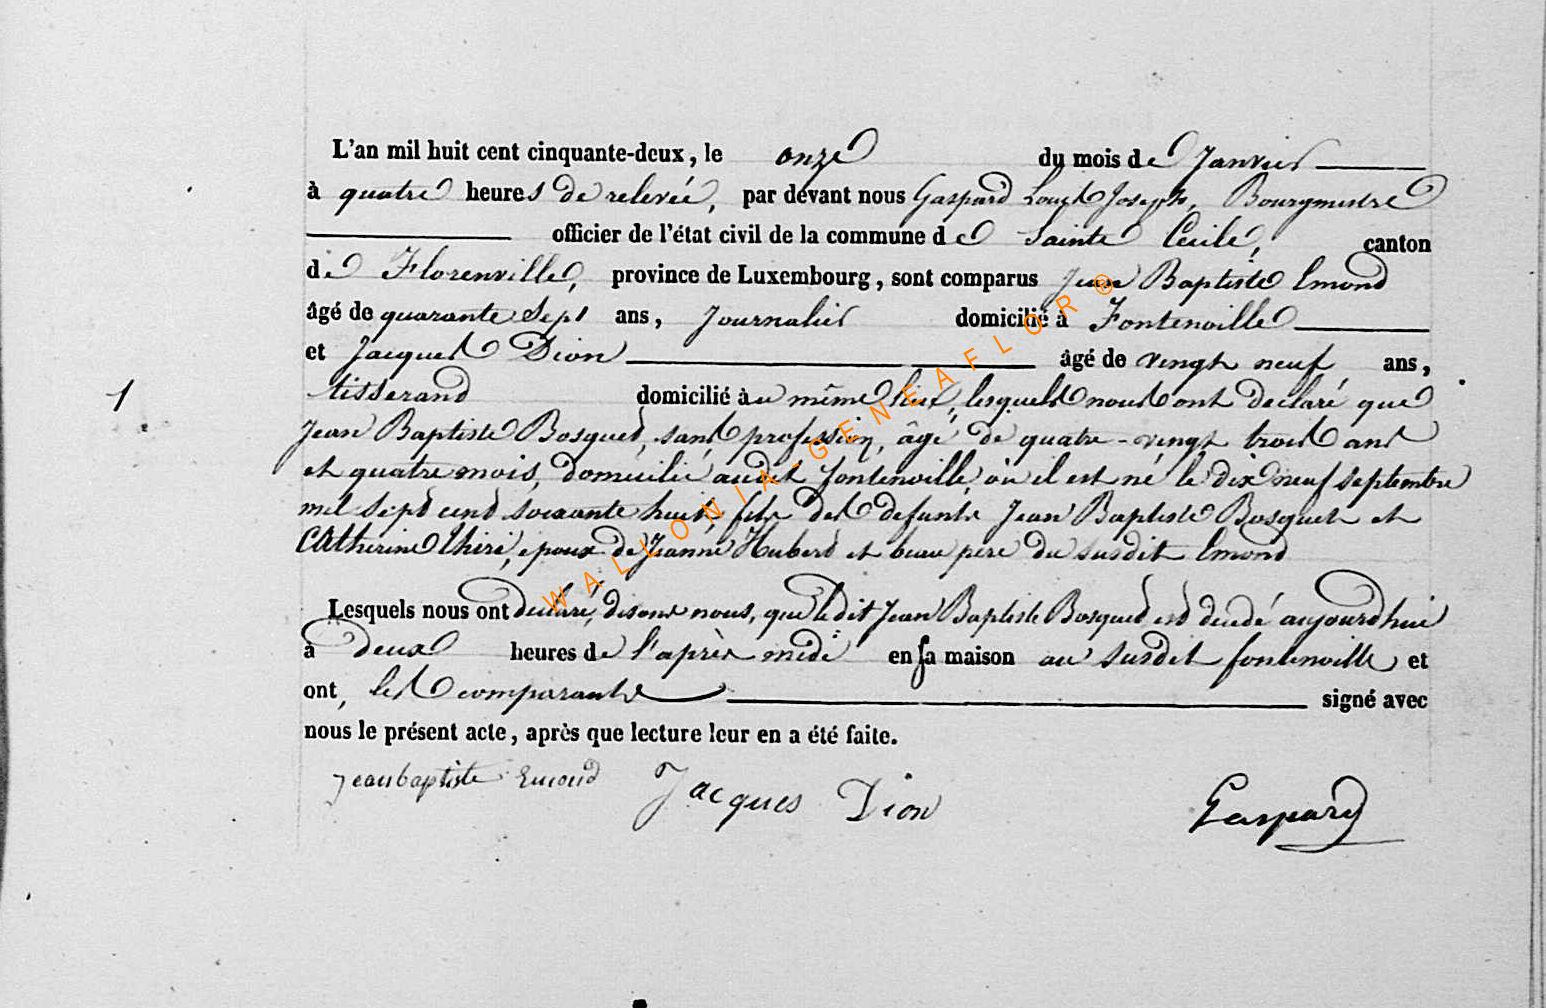 L'an mil huit cent cinquante-deux, le onze du mois de Janvier
à quatre heures de relevée, par devant nous Gaspard Louis Joseph, Bourgmestre
officier de l'état civil de la commune de Sainte Cecile, canton
de Florenville, province de Luxembourg, sont comparus Jean Baptiste Emond
âgé de quarante Sept ans, Journalier domicilié à Fontenoille
et Jacques Dion âgé de vingt neuf ans,
1 tisserand domicilié au même lieu, lesquels nous ont declaré que
Jean Baptiste Bosquet, sans profession, âgé de quatre-vingt trois ans
et quatre mois, domicilié audit fontenoille où il est né le dix neuf septembre
mil sept cent soixante huit, fils des defunts Jean Baptiste Bosquet et
Catherine Thiri, epoux de Jeanne Hubert et beau pere du susdit Emond
Lesquels nous ont declaré, disons nous, que ledit Jean Baptiste Bosquet est decedé aujourdhui
à deux heures de l'après midi en sa maison au susdit fontenoille et
ont, les comparants signé avec
nous le présent acte, après que lecture leur en a été faite.
Jeanbaptiste Emond Jacques Dion Gaspard
WALLONIA-GENEAFLOR®